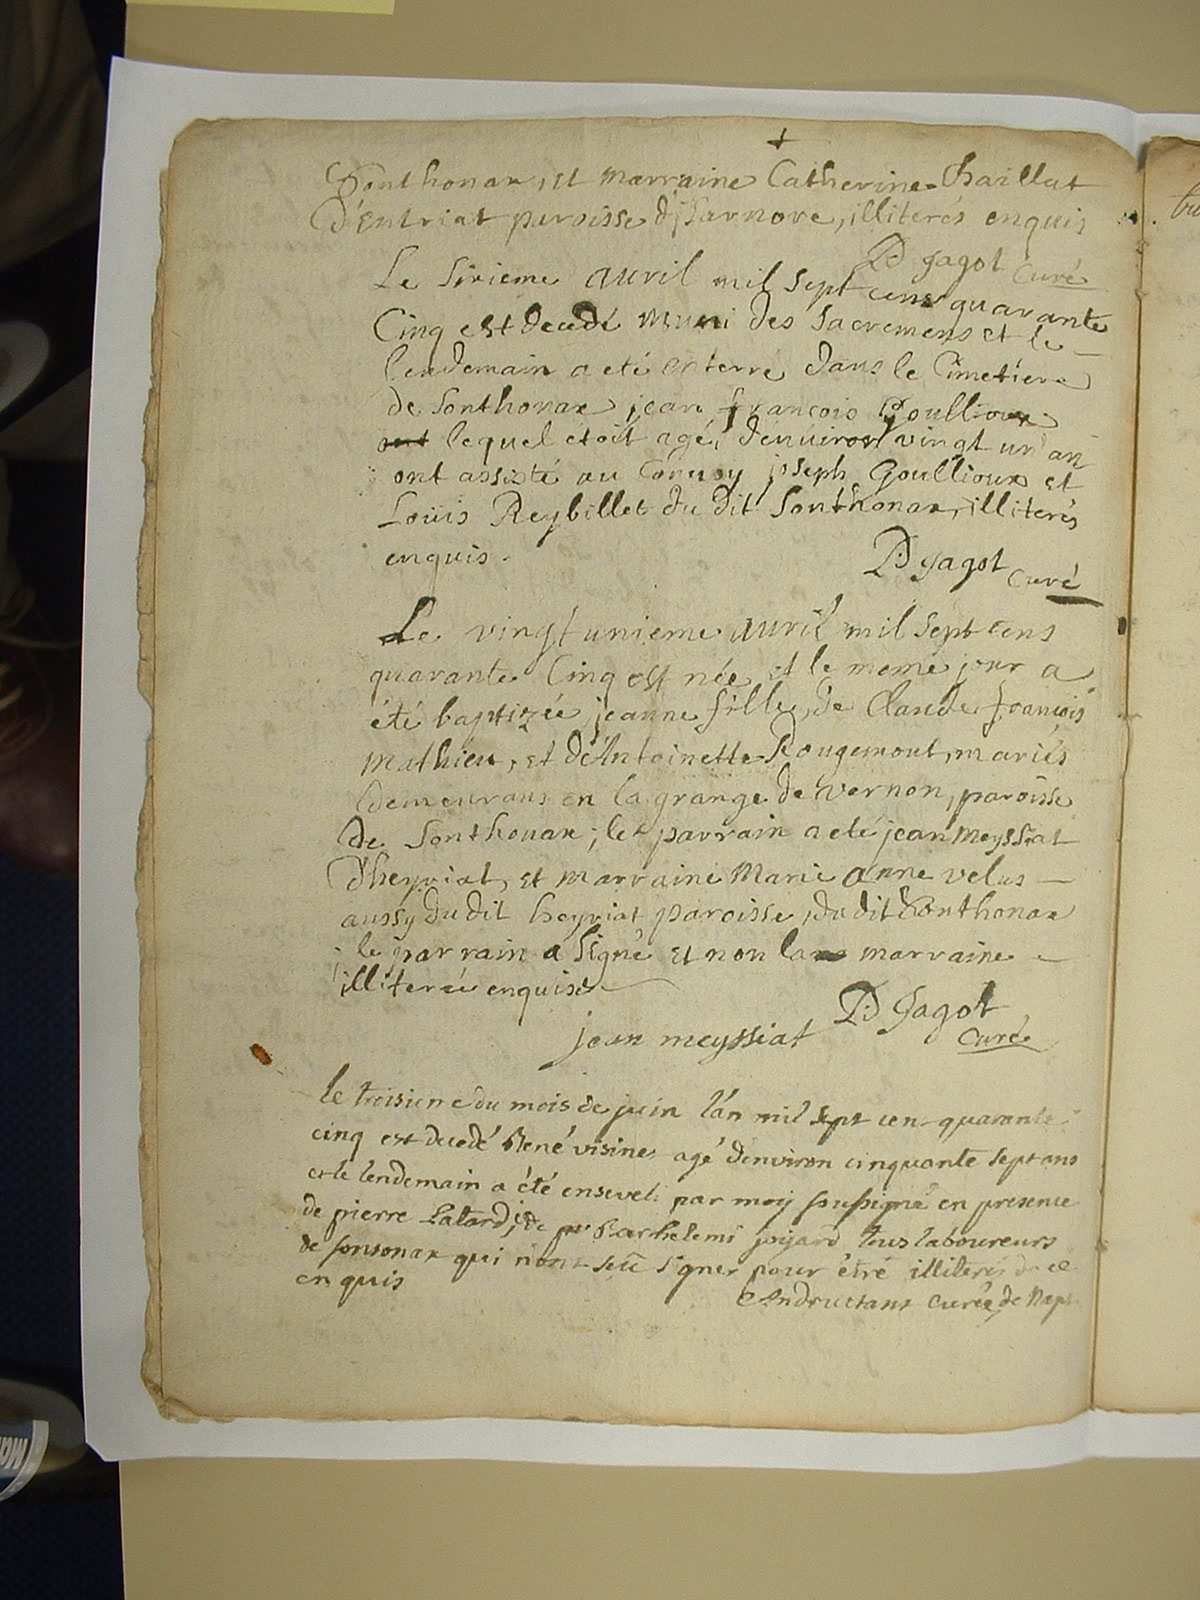 Sonthonax, et marraine Catherine Chaillat
d'Entriat paroisse d'jzarnore, illiterés enquis
D Jagot Curé
Le Sixieme avril mil Sept cens quarante
Cinq est decedé muni des Sacremens et le
lendemain a eté enterré dans le Cimetiere
de Sonthonax jean François Goullioux
lequel étoit agé, d'enuiron vingt un an
ont assisté au Conuoy joseph Goullioux et
Loüis Reybillet du dit Sonthonax, illiterés
enquis.
D Jagot Curé
Le vingt unieme auril mil Sept cens
quarante Cinq est née et le meme jour a
été baptizée jeanne fille, de Claude françois
Mathieu, et d'Antoinette Rougemont, mariés
demeurans en la grange de Vernon, paroisse
de Sonthonax; le parrain a eté jean Meyssiat
d'heyriat, et marraine Marie Anne velus
aussy du dit heyriat paroisse, du dit Sonthonax
le parrain a Signé et non la marraine
illiterée enquise
D Jagot
Curé
jean meyssiat
le troisieme du mois de juin l'an mil sept cent quarante
cinq est decedé René visine agé d'environ cinquante sept ans
et le lendemain a été enseveli par moy soussigné en presence
de pierre Latard, de Barthelemi joyard tous laboureurs
de sonsonax qui n'ont sçu signer pour être illiterés de ce
en quis
curée de